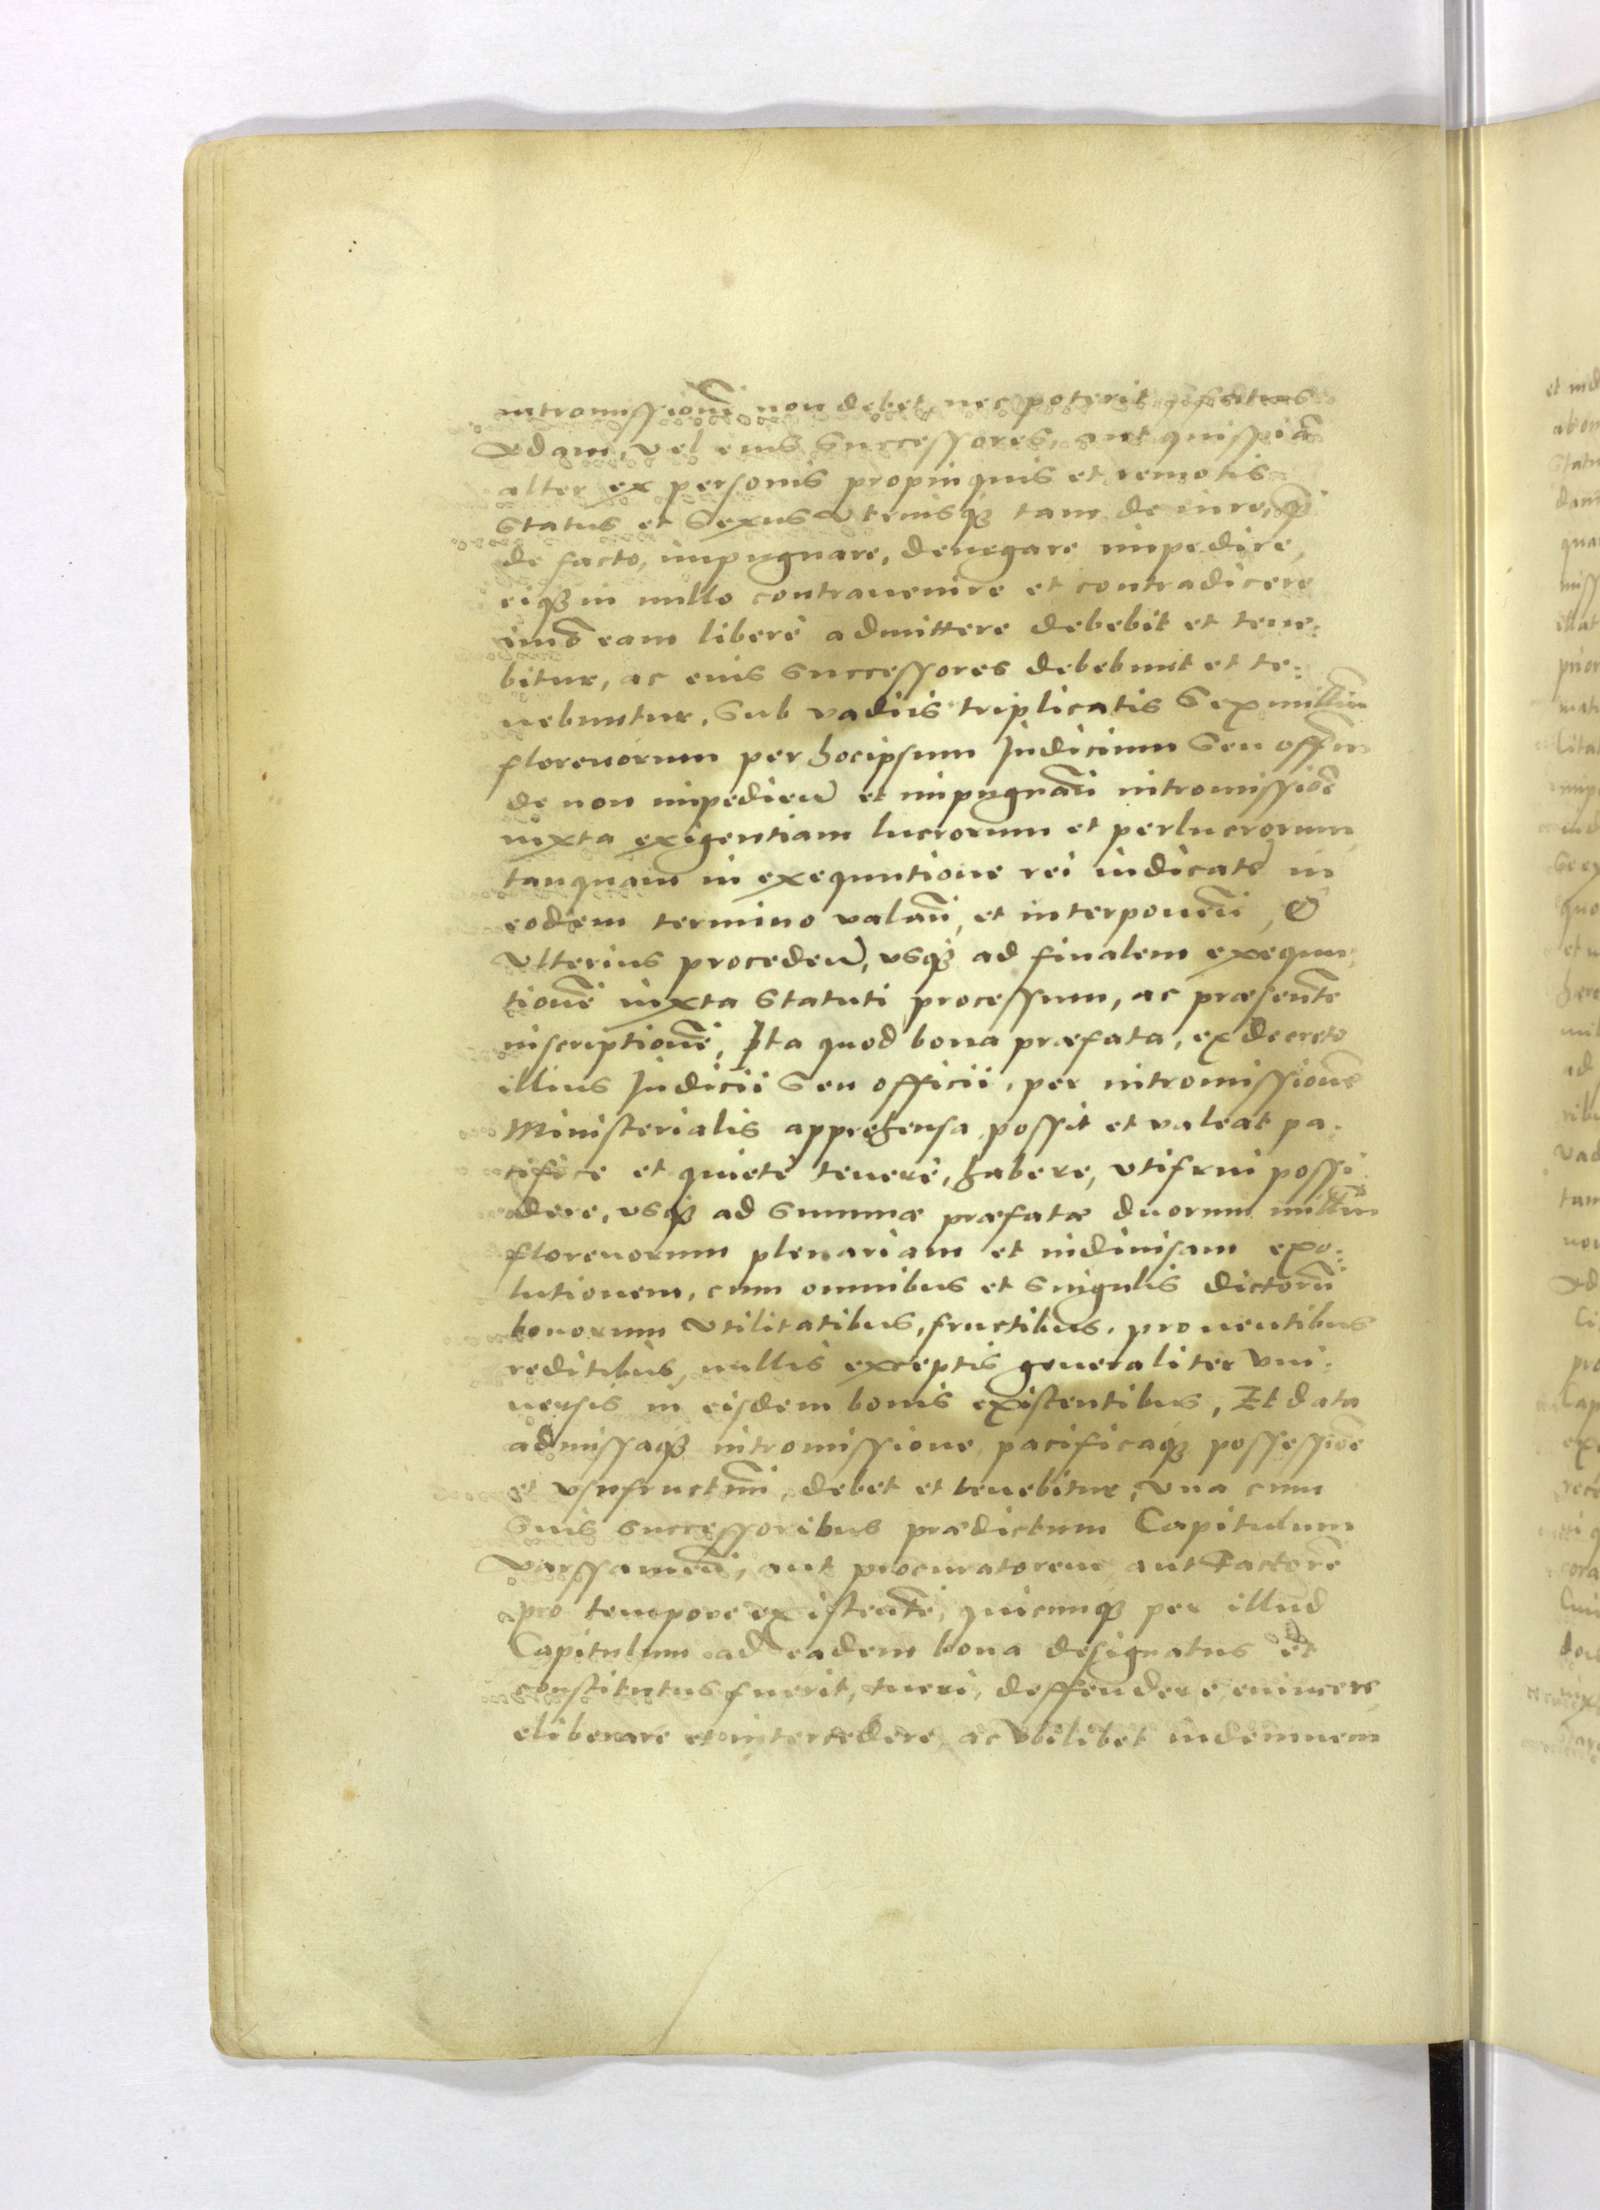 intromissionē non debet nec poterit
Adam, vel eius successores, aut quispiā
alter ex personis propinquis et remotis
status et sexus vtriusq3 tam de iure, q̃
de facto, impugnare, denegare impedire,
eiq3 in nullo contrauenire et contradicere
imõ eam liberè admittere debebit et tene-
bitur, ac eius successores debebunt et te-
nebuntur, Sub vadiis triplicatis Sex millium
florenorum per hocipsum Iudicium Seu offm
de non impedien̄ et impugnan̄ intromissiõe
iuxta exigentiam lucrorum et perlucrorum
tanquam in exequutione rei iudicatę in
eodem termino valan̄, et interponen̄, &
vlterius proceden̄, vsq3 ad finalem exequu-
tionē iuxta Statuti processum, ac præsentē
inscriptionē, Ita quod bona præfata, ex decreto
illius Iudicii Seu officii, per intromissionē
Ministerialis apprehensa possit et valeat pa-
cificè et quietè tenere, habere, vtifrui possi
dere, vsq3 ad summæ præfatæ duorum millium
florenorum plenariam et indiuisam exo-
lutionem, cum omnibus et singulis dictorū
bonorum vtilitatibus, fructibus, prouentibus
reditibus, nullis exceptis generaliter vni-
uersis in eisdem bonis existentibus, Et data
admissaq3 intromissione, pacificaq3 possessiõe
et vsufructuū, debet et tenebitur, vna cum
suis successoribus prædictum Capitulum
Varssauień, aut procuratorem aut Factorē
pro tempore existentē, quicunq3 per illud
Capitulum ad eadem bona designatus et
constitutus fuerit, tueri, deffendere, euincere
eliberare et intercedere, ac vbilibet indemnem